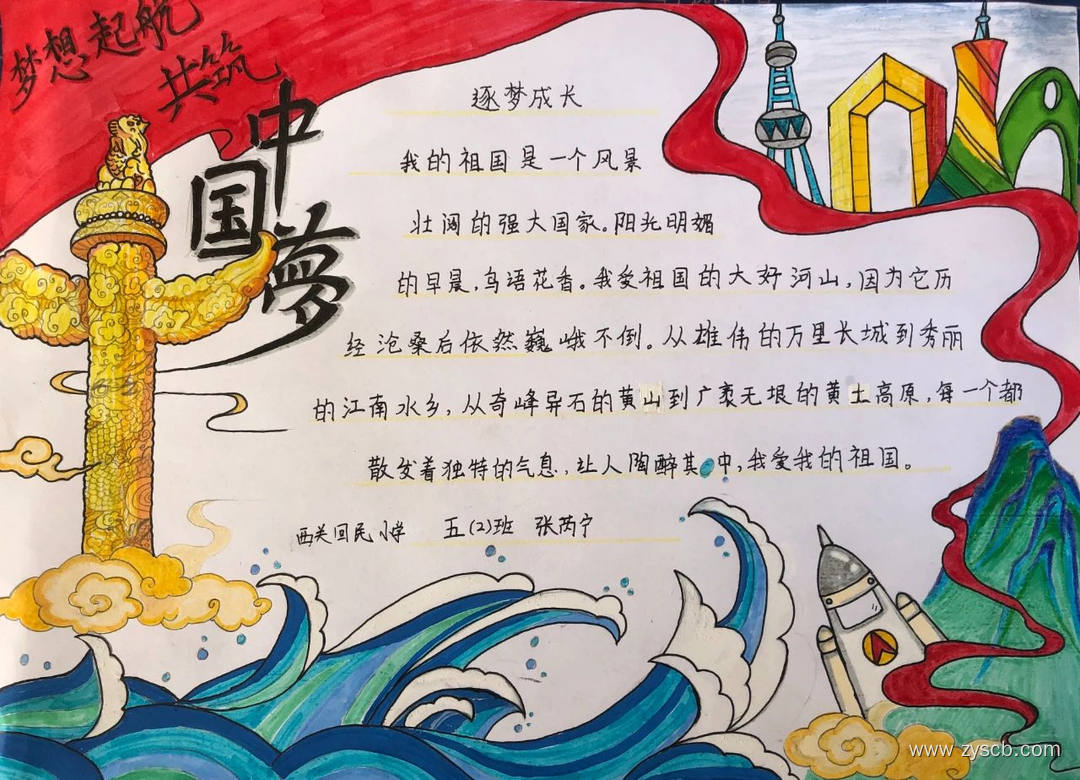 梦想起航
共筑
中国夢
逐梦成长
我的祖国是一个风景
壮阔的强大国家。阳光明媚
的早晨,鸟语花香。我爱祖国的大好河山,因为它历
经沧桑后依然巍峨不倒。从雄伟的万里长城到秀丽
的江南水乡,从奇峰异石的黄山到广袤无垠的黄土高原,每一个都
散发着独特的气息,让人陶醉其中,我爱我的祖国。
西关回民小学 五(2)班 张芮宁
www.zyscb.com